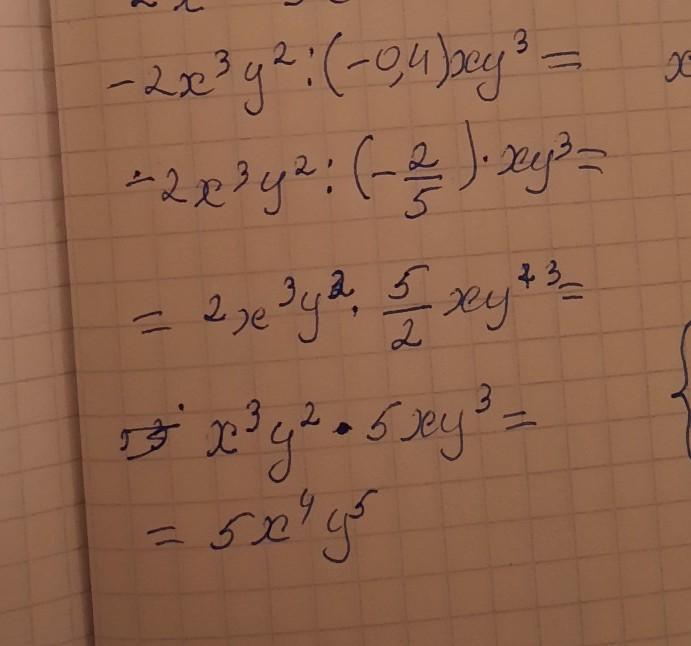 -2x³y²:(-0,4)xy³=
-2x³y²:(-2/5)·xy³=
= 2x³y²·5/2xy³=
x³y²·5xy³=
= 5x⁴y⁵